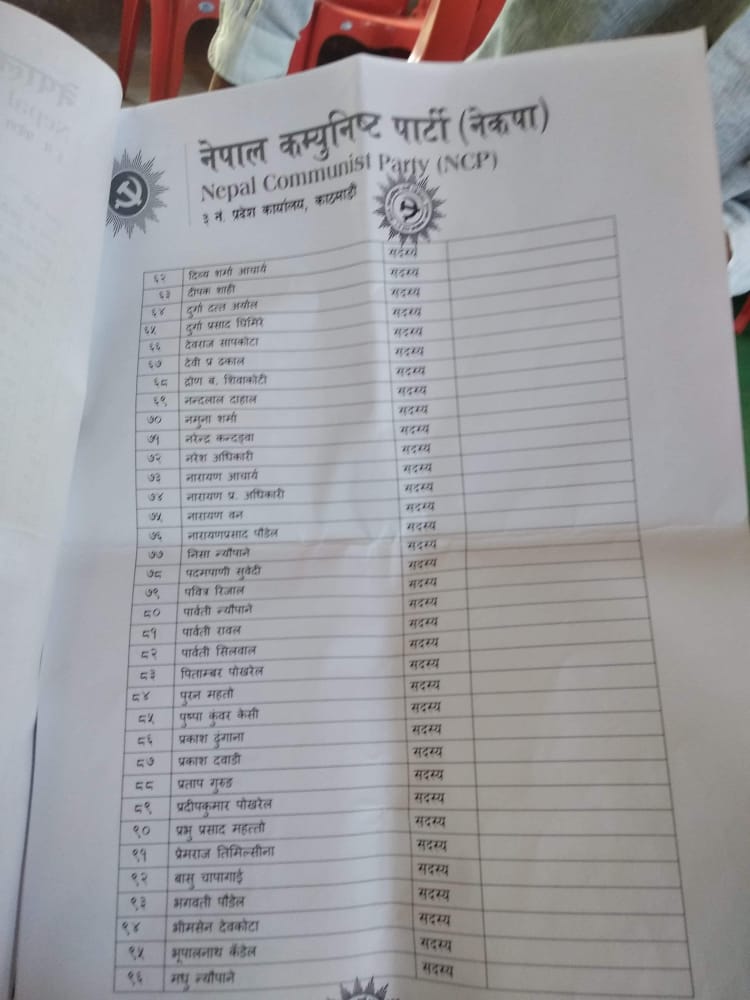 नेपाल कम्युनिष्ट पार्टी (नेकपा)
Nepal Communist Party (NCP)
३ नं. प्रदेश कार्यालय, काठमाडौं
६२ दिव्य शर्मा आचार्य सदस्य
६३ दीपक शाही सदस्य
६४ दुर्गा दत्त अर्याल सदस्य
६५ दुर्गा प्रसाद घिमिरे सदस्य
६६ देवराज सापकोटा सदस्य
६७ देवी प्र ढकाल सदस्य
६८ द्रोण ब. शिवाकोटी सदस्य
६९ नन्दलाल दाहाल सदस्य
७० नमुना शर्मा सदस्य
७१ नरेन्द्र कन्दङवा सदस्य
७२ नरेश अधिकारी सदस्य
७३ नारायण आचार्य सदस्य
७४ नारायण प्र. अधिकारी सदस्य
७५ नारायण वन सदस्य
७६ नारायणप्रसाद पौडेल सदस्य
७७ निसा न्यौपाने सदस्य
७८ पदमपाणी सुवेदी सदस्य
७९ पवित्र रिजाल सदस्य
८० पार्वती न्यौपाने सदस्य
८१ पार्वती रावल सदस्य
८२ पार्वती सिलवाल सदस्य
८३ पिताम्बर पोखरेल सदस्य
८४ पुरन महतो सदस्य
८५ पुष्पा कुंवर केसी सदस्य
८६ प्रकाश ढुंगाना सदस्य
८७ प्रकाश दवाडी सदस्य
८८ प्रताप गुरुङ सदस्य
८९ प्रदीपकुमार पोखरेल सदस्य
९० प्रभु प्रसाद महत्तो सदस्य
९१ प्रेमराज तिमिल्सीना सदस्य
९२ बासु चापागाई सदस्य
९३ भगवती पौडेल सदस्य
९४ भीमसेन देवकोटा सदस्य
९५ भूपालनाथ कँडेल सदस्य
९६ मधु न्यौपाने सदस्य